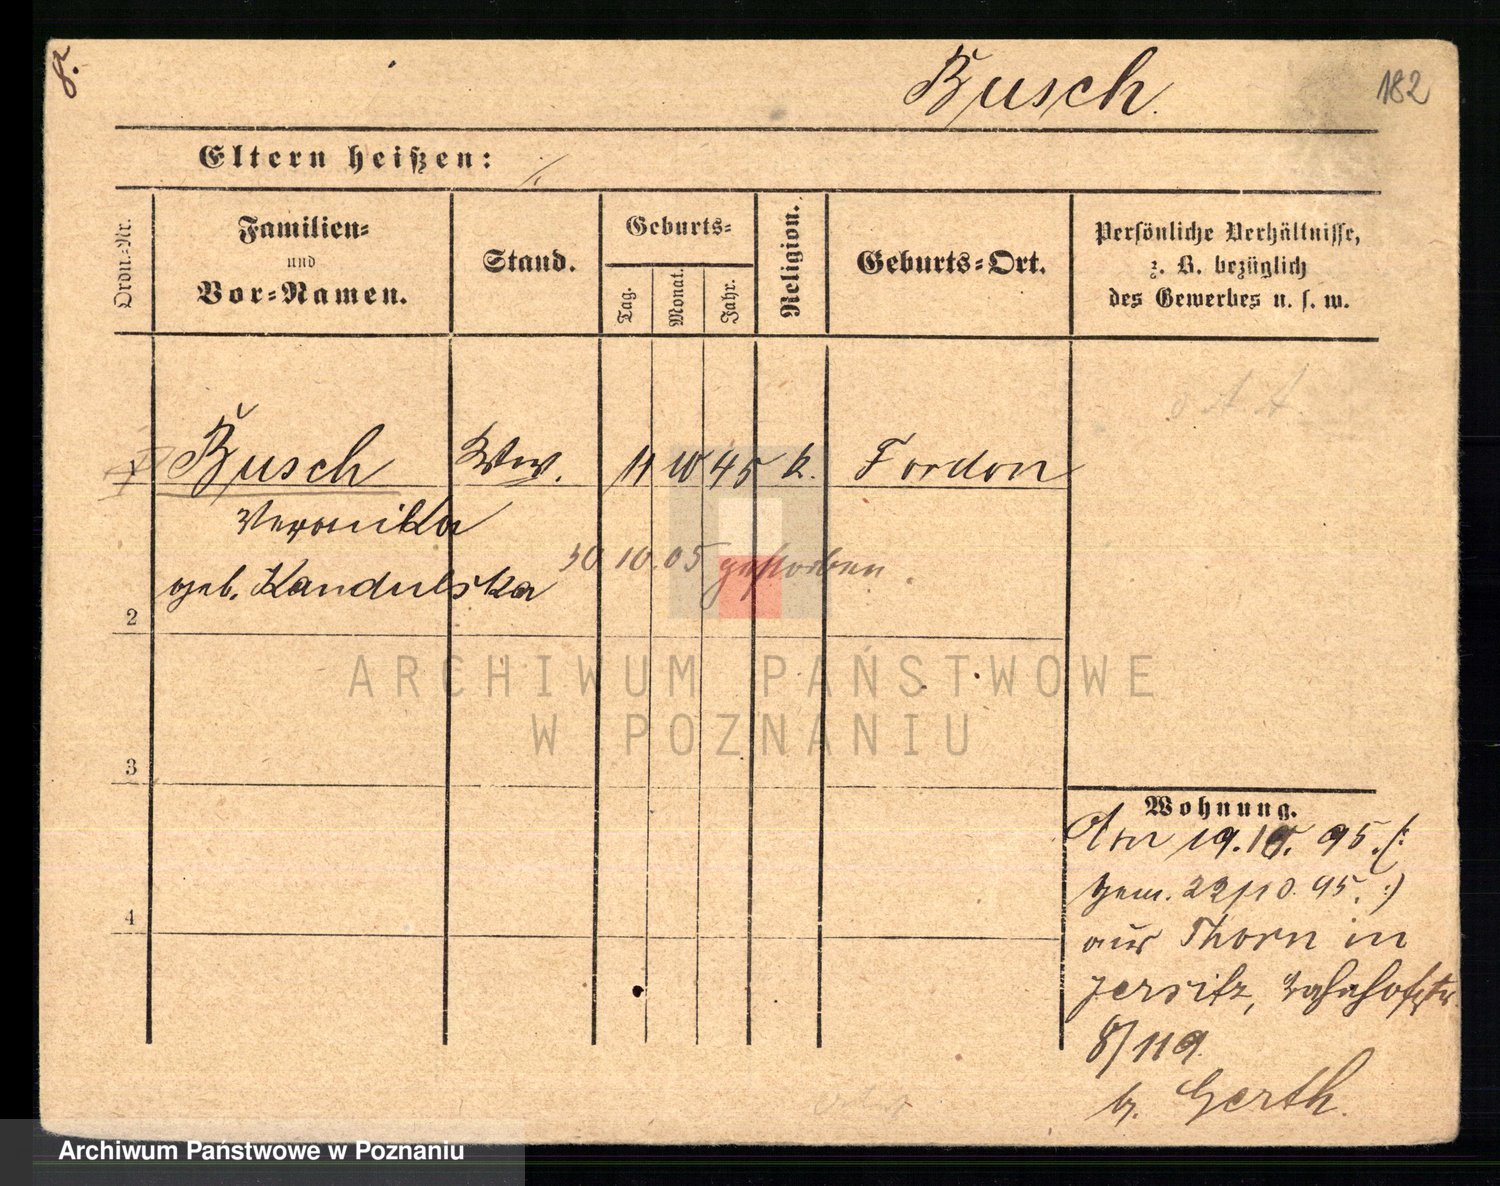 8.
Busch.
182
Eltern heißen: ./.
Ordn.-Nr.
Familien-
und
Vor-Namen.
Stand.
Geburts-
Tag.
Monat.
Jahr.
Religion.
Geburts-Ort.
Persönliche Verhältnisse,
z. B. bezüglich
des Gewerbes u. s. w.
1 Busch Ww. 11 10 45 k. Fordon
Veronika
geb. Kandulska
30 10. 05 gestorben.
2
3
4
Wohnung.
Am 19. 10. 95. (:
gem. 22/10. 95. :)
aus Thorn in
Jersitz, Bahnhofstr.
8/119.
b. Gerth.
ARCHIWUM PAŃSTWOWE
W POZNANIU
Archiwum Państwowe w Poznaniu